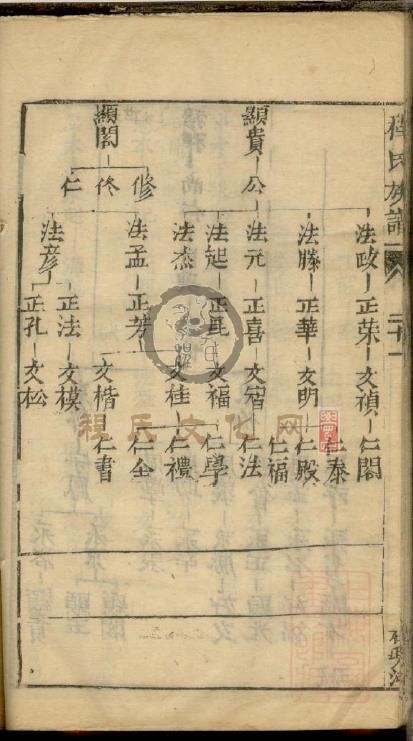 程氏族譜
二十一
法政 正荣 文禎 仁閣
仁泰
法滕 正華 文明 仁殿
仁福
顯貴 公 法元 正喜 文宿 仁法
法起 正昆 文福 仁學
法杰 文桂 仁禮
修 法孟 正芳 仁全
文楷 仁書
佟
顯閣
仁 法彥 正法 文模
正孔 文松
程氏文化网